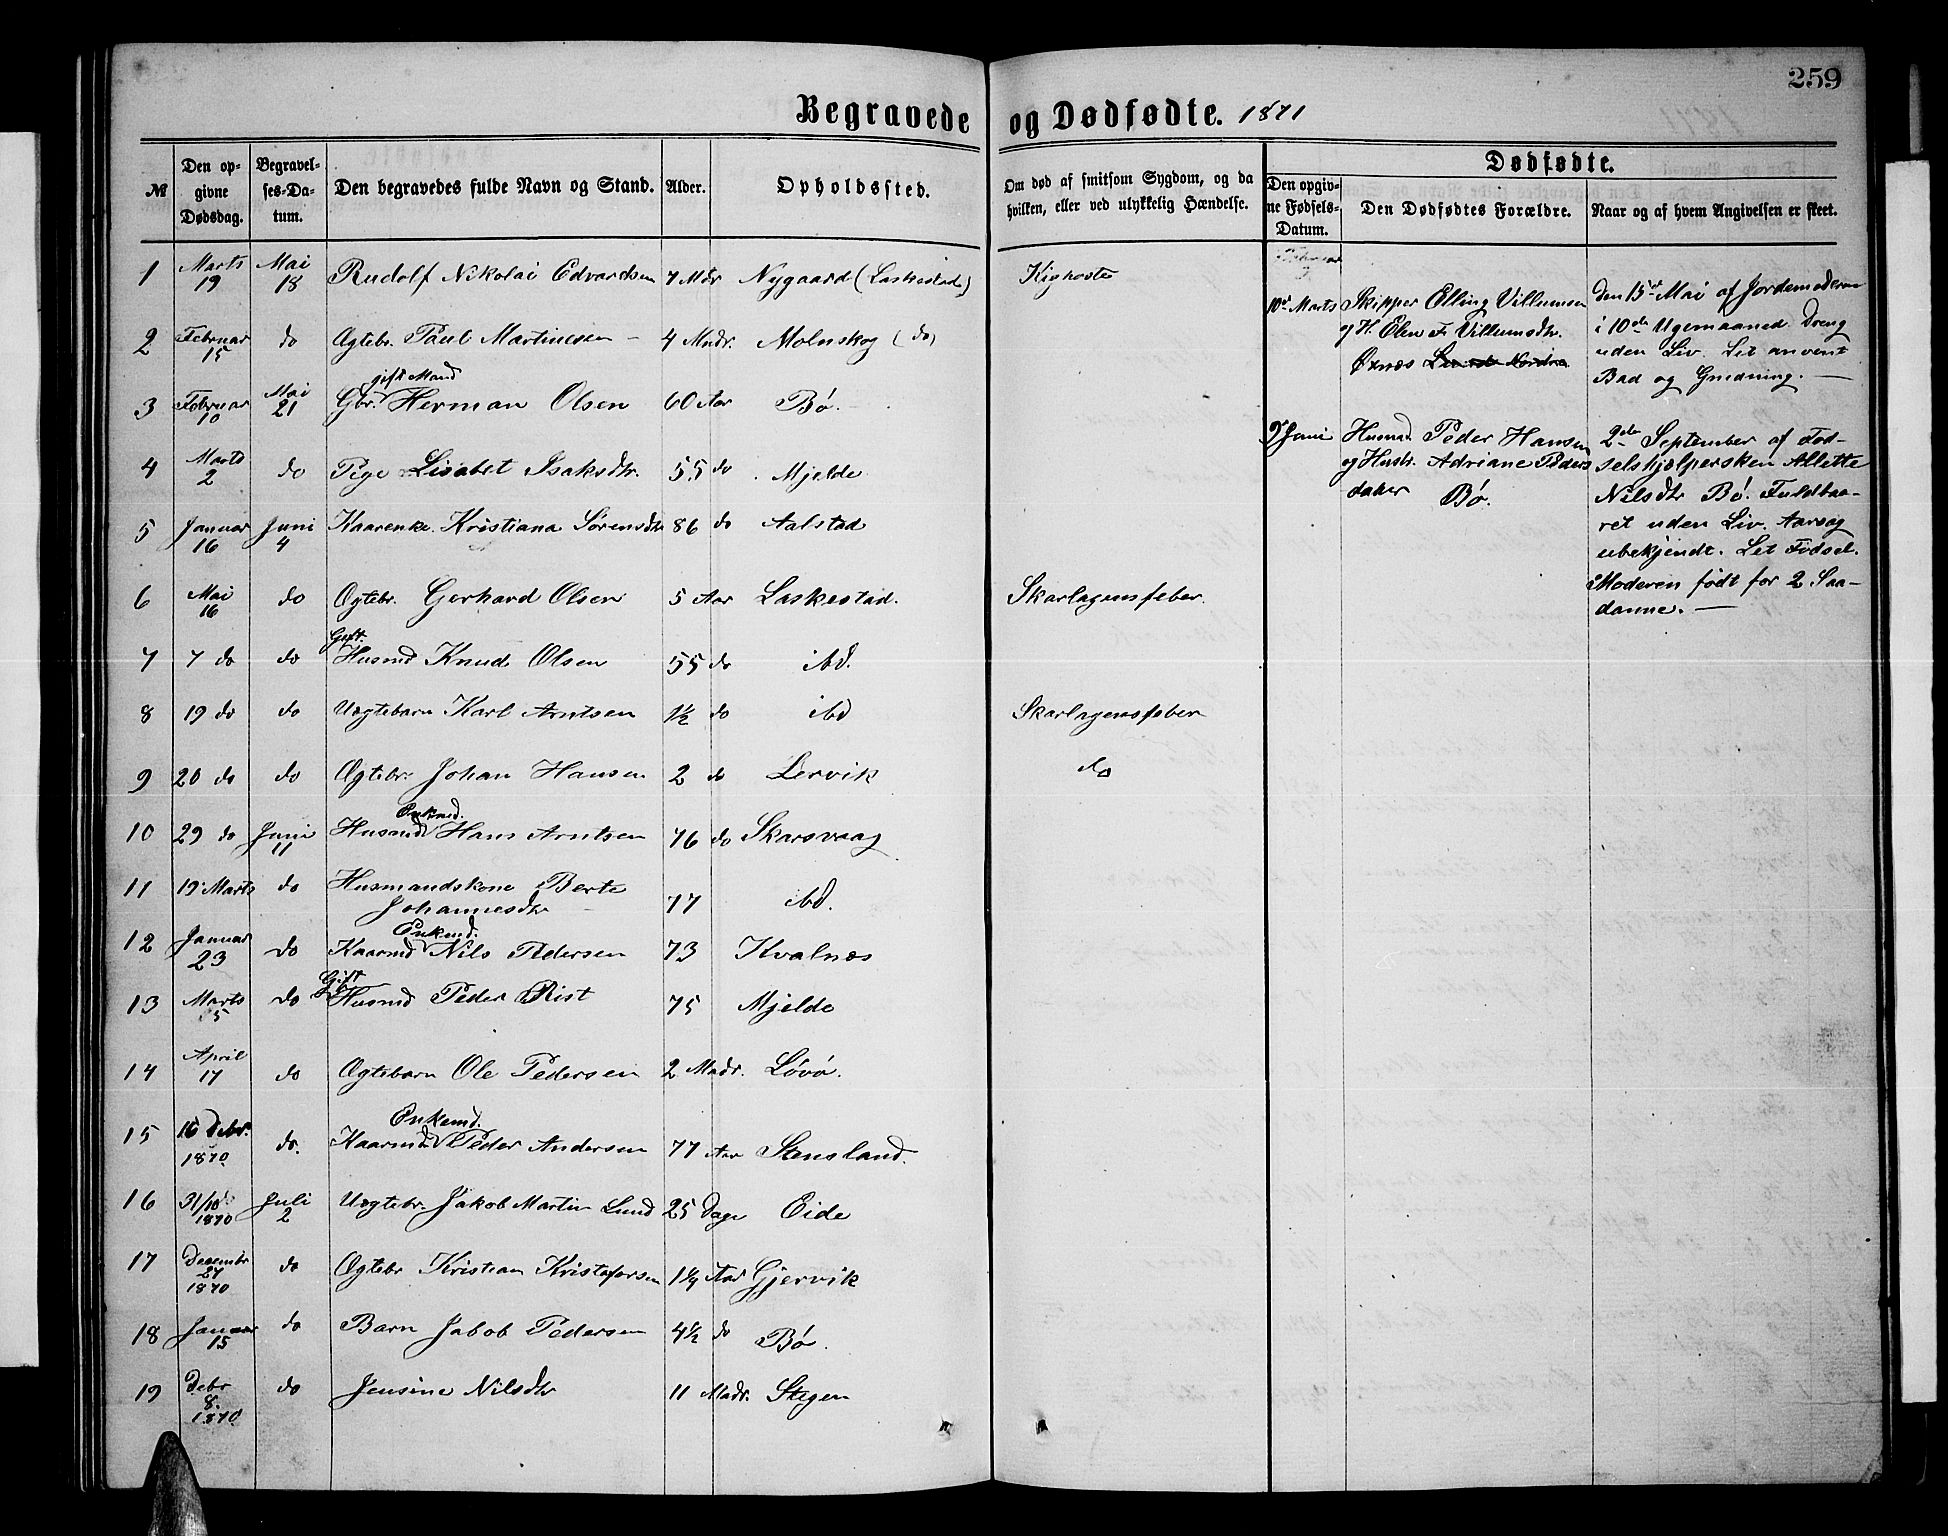 259
Begravede og Dødfødte. 1871
№
Den opgivne Dødsdag.
Begravelses-Datum.
Den begravedes fulde Navn og Stand.
Alder.
Opholdssted.
Om død af smitsom Sygdom, og da hvilken, eller ved ulykkelig Hændelse.
Dødfødte.
Den opgivne Fødsels-Datum.
Den Dødfødtes Forældre.
Naar og af hvem Angivelsen er skeet.
1 Marts 19 Mai 18 Rudolf Nikolai Edvardsen 7 Mdr Nygaard (Laskestad) Kighoste
2 Februar 15 do Ægtebr. Paul Martinesen – 4 Mndr. Molnskog (do)
3 Februar 10 Mai 21 Gbr. gift Mand Herman Olsen 60 Aar Bø.
4 Marts 2 do Pige Lisabet Isaksdtr. 55 do Mjelde
5 Januar 16 Juni 4 Kaarenke. Kristiana Sørensdtr 86 do Aalstad
6 Mai 16 do Ægtebr. Gerhard Olsen 5 Aar Laskestad. Skarlagensfeber.
7 7 do do Gift. Husmd Knud Olsen 55 do ibd.
8 19 do do Uægtebarn Karl Arntsen 1½ do ibd Skarlagensfeber
9 20 do do Ægtebr. Johan Hansen 2 do Lervik do
10 29 do Juni 11 Husmd Enkemd. Hans Arntsen 76 do Skarsvaag
11 19 Marts do Husmandskone Berte
Johannesdtr – 77 ibd.
12 Januar 23 do Kaarmd Enkemd. Nils Pedersen 73 Kvalnæs
13 Marts 5 do Gift Husmd Peder Rist 75 Mjelde
14 April 17 do Ægtebarn Ole Pedersen 2 Madr. Løvø.
15 16 Debr. 1870 do. Kaarmd. Enkemd. Peder Andersen 77 Aar Stensland.
16 31/10 1870 Juli 2 Uægtebr. Jakob Martin Lund 25 Dage Eide
17 Decembr 27 1870 do Ægtebr Kristian Kristofersen 1¼ Aar Gjervik
18 Januar 15 do Barn Jakob Pedersen 4½ do Bø.
19 Debr 8. 1870 do Jensine Nilsdtr 11 Madr. Stegen
10de Marts
Skipper Elling Villumsen
og H. Elen F. Villumsdtr.
Øxnæs
Den 15de Mai af Jordemoderen
i 10de Ugemaaned. Dreng
uden Liv. Let anvent
Bad og Gnidning. —
9de Juni
Husmd. Peder Hansen
og Hustr. Adriane Peders
datter Bø.
2den September af Fød-
selshjælpersken Allette
Nilsdtr Bø. Fuldbaa-
ret uden Liv. Aarsag
ubekjendt. Let Fødsel.
Moderen født for 2 Saa-
danne. —